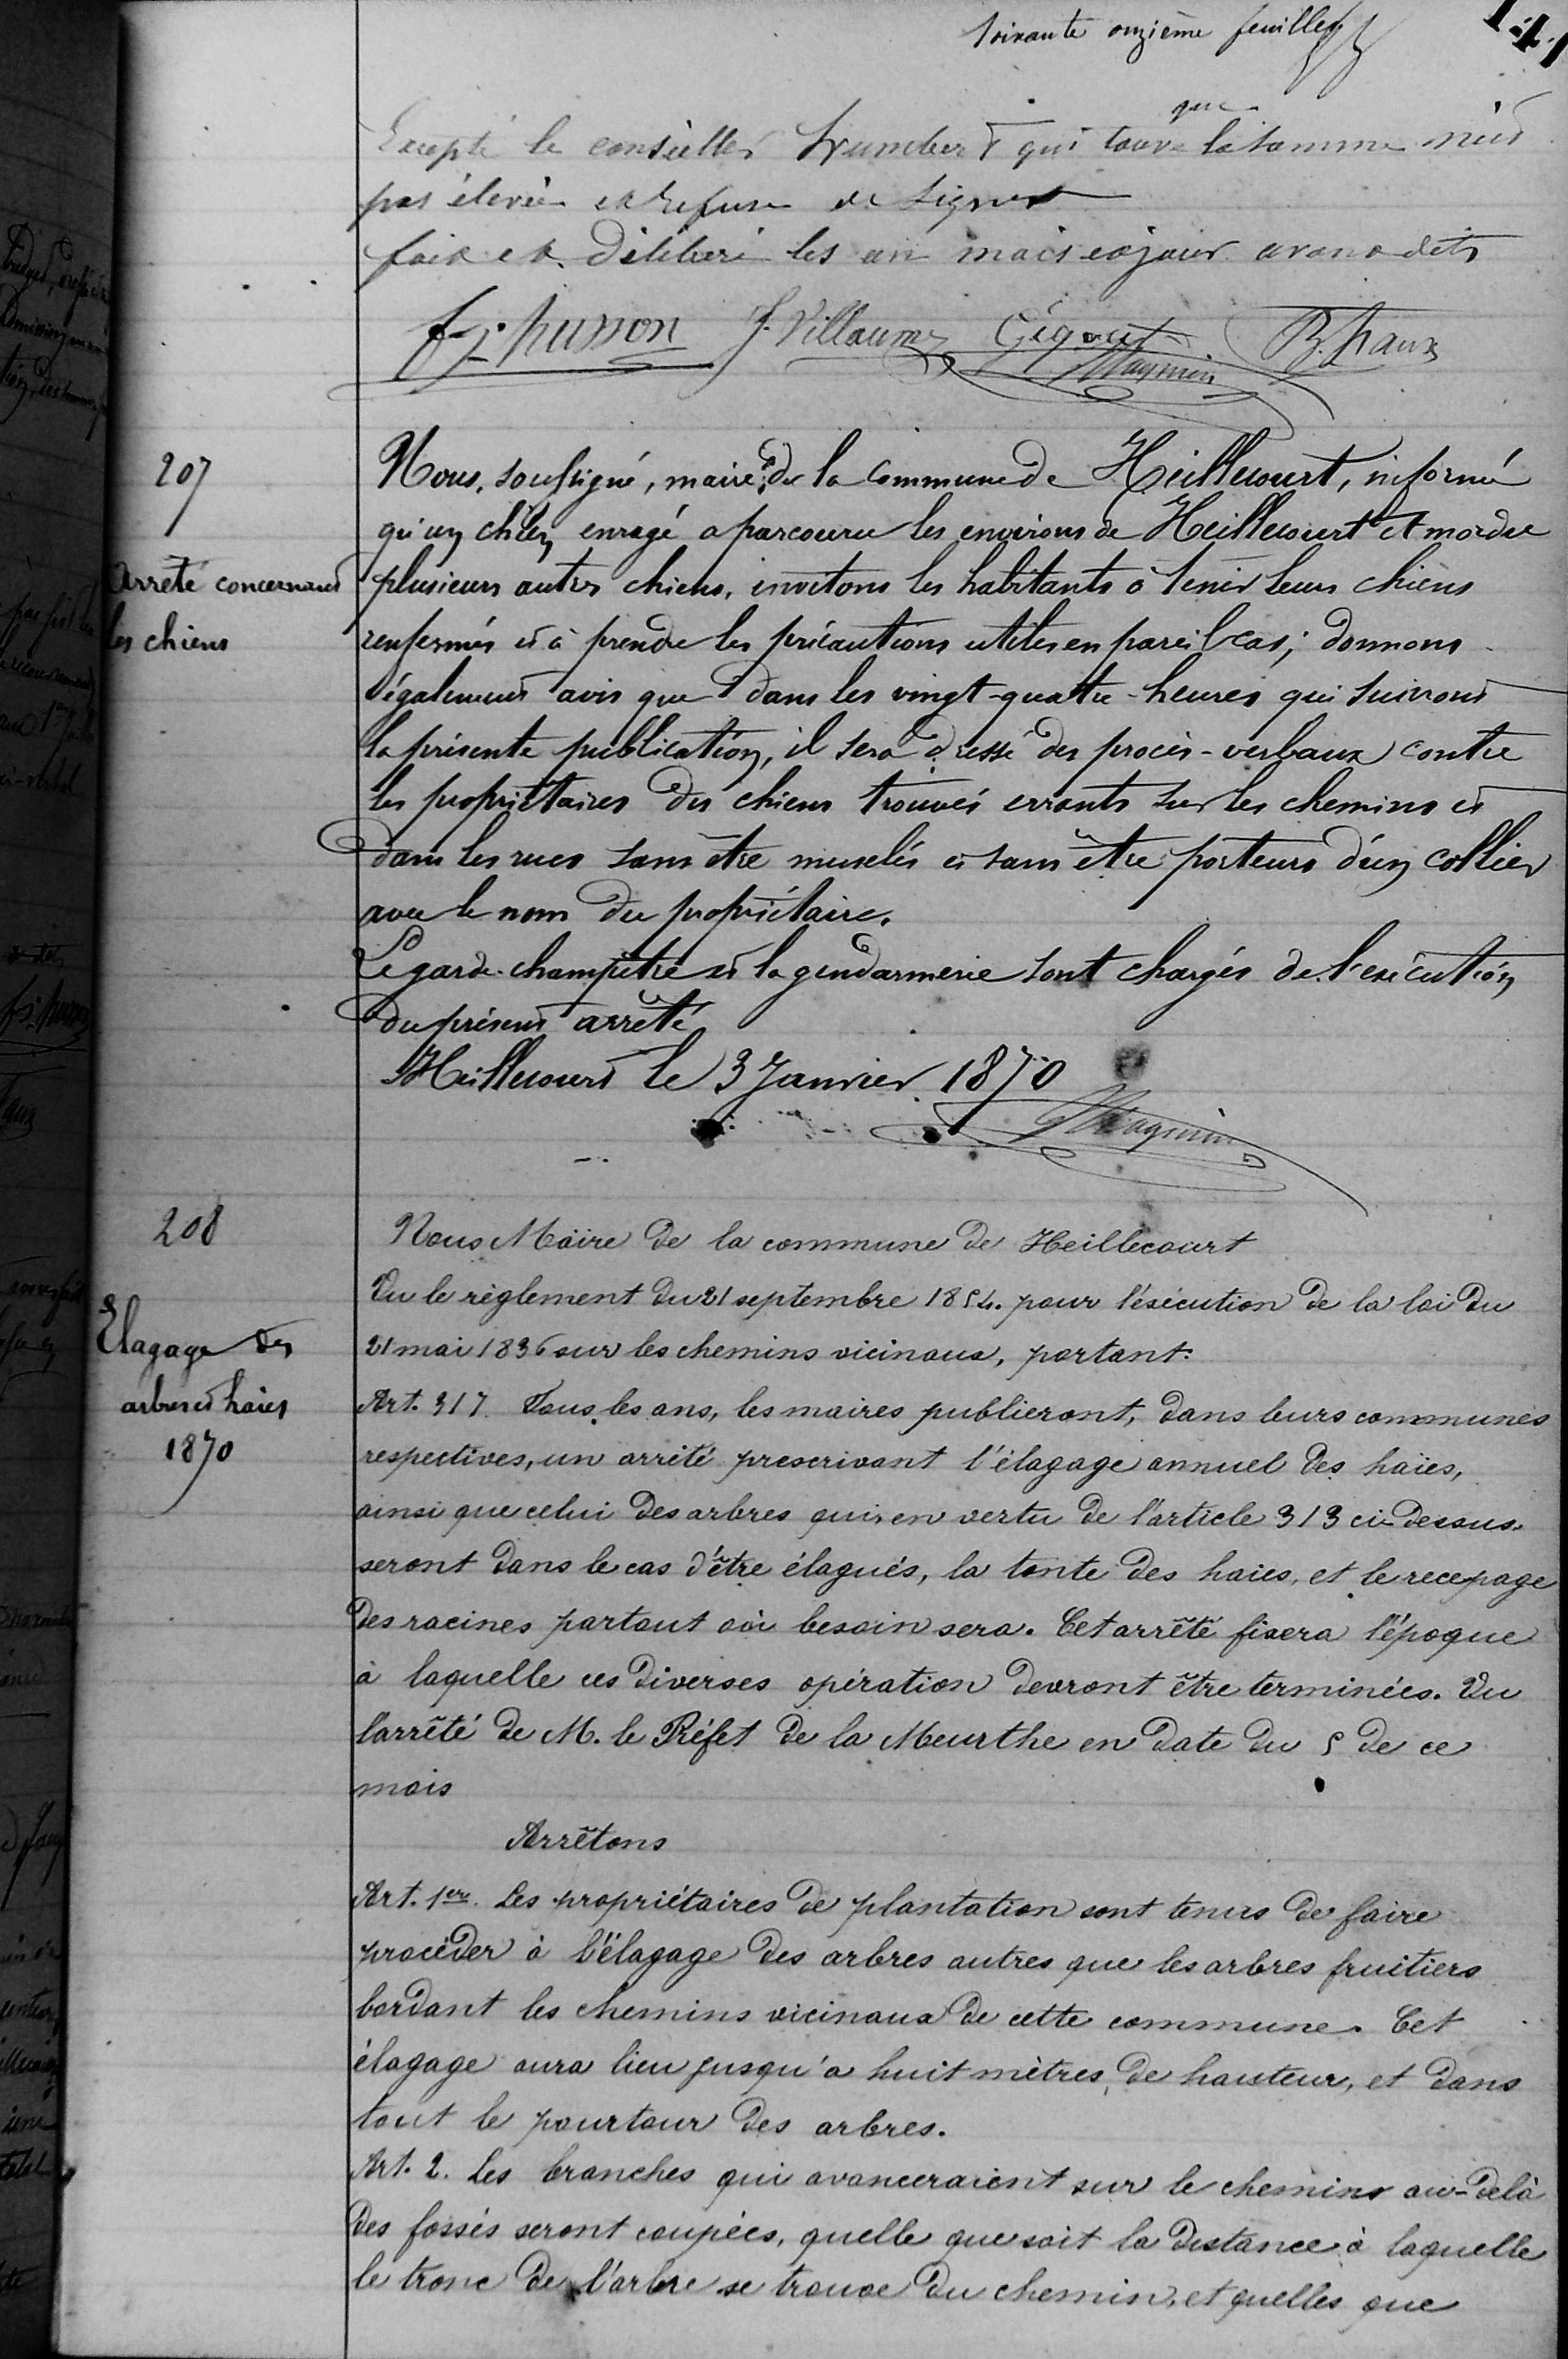 Soixante onzième feuillet
141
que
Excepté le conseiller Humbert qui trouve la somme n'est
pas élevée et refuse de signer
fait et délibéré les an mois et jour avant dits
f. j. husson J. Villaume Gégout B. haux
Maymin
207
Arrêté concernant
les chiens
Nous, soussigné, maire de la commune de Heillecourt, informé
qu'un chien enragé a parcouru les environs de Heillecourt et mordu
plusieurs autres chiens, invitons les habitants à tenir leurs chiens
renfermés et à prendre les précautions utiles en pareil cas ; donnons
également avis que dans les vingt-quatre-heures qui suivront
la présente publication, il sera dressé des procès-verbaux contre
les propriétaires des chiens trouvés errants sur les chemins et
dans les rues sans être muselés et sans être porteurs d'un collier
avec le nom du propriétaire.
Le garde-champêtre et la gendarmerie sont chargés de l'exécution
du présent arrêté
Heillecourt le 3 Janvier 1870
208
Elagage des
arbres et haies
1870
Nous Maire de la commune de Heillecourt
Vu le règlement du 21 septembre 1854. pour l'éxécution de la loi du
21 mai 1836 sur les chemins vicinaux, portant:
Art. 317. Tous les ans, les maires publieront, dans leurs communes
respectives, un arrêté prescrivant l'élagage annuel des haies,
ainsi que celui des arbres qui, en vertu de l'article 313 ci-dessus.
seront dans le cas d'être élagués, la tonte des haies, et le recepage
des racines partout où besoin sera. Cet arrêté fixera l'époque
à laquelle ces diverses opération devront être terminées. Vu
l'arrêté de M. le Préfet de la Meurthe en date du 5 de ce
mois
Arrêtons
Art. 1er. Les propriétaires de plantation sont tenus de faire
procéder à l'élagage des arbres autres que les arbres fruitiers
bordant les chemins vicinaux de cette commune. Cet
élagage aura lieu jusqu'a huit mètres de hauteur, et dans
tout le pourtour des arbres.
Art. 2. Les branches qui avanceraient sur le chemins au-delà
des fossés seront coupées, quelle que soit la distance à laquelle
le tronc de l'arbre se trouve du chemin, et quelles que